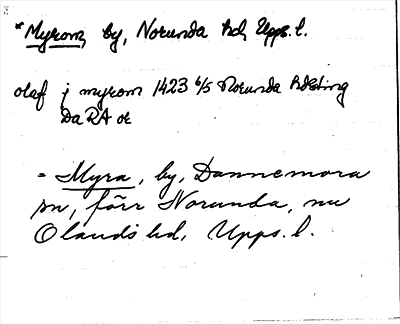 *Myrom, by, Norunda hd, Upps. l.
olaf j myrom 1423 6/5 Norunda hdsting
DaRA or
= Myra, by, Dannemora
sn, förr Norunda, nu
Olands hd, Upps. l.